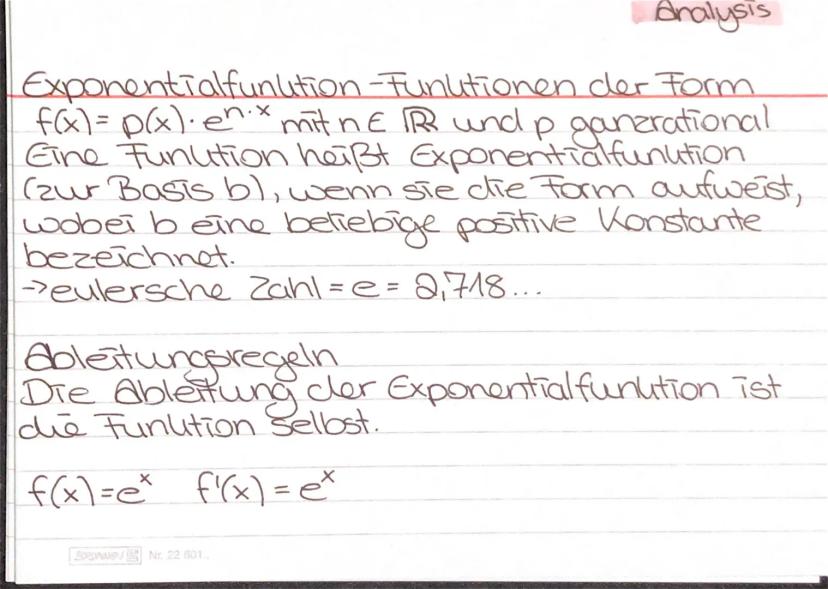 Analysis
Exponentialfunktion - Funktionen der Form
f(x) = p(x) · e^{n·x} mit n ∈ ℝ und p ganzrational
Eine Funktion heißt Exponentialfunktion
(zur Basis b), wenn sie die Form aufweist,
wobei b eine beliebige positive Konstante
bezeichnet.
→ eulersche Zahl = e = 2,718...
Ableitungsregeln
Die Ableitung der Exponentialfunktion ist
die Funktion selbst.
f(x) = e^x f'(x) = e^x
Nr. 22 601..